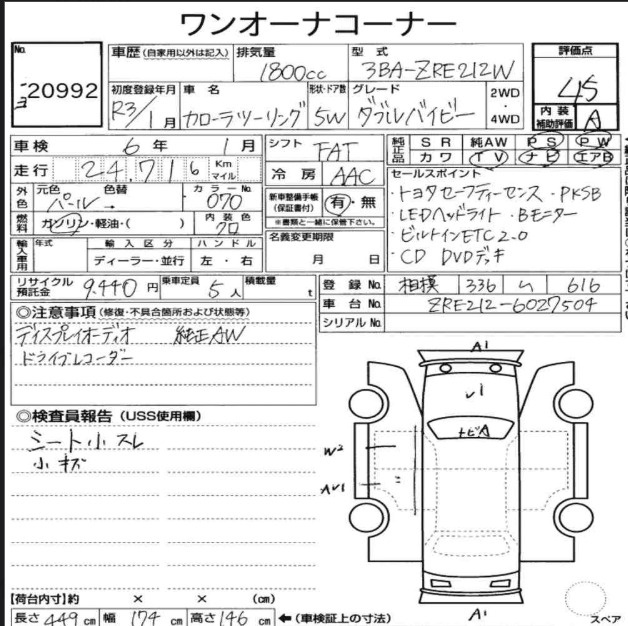 ワンオーナコーナー
No. 20992
車歴 (自家用以外は記入) 排気量 1800cc 型式 3BA-ZRE212W 評価点 4.5
初度登録年月 R3/1月 車名 カローラツーリング 形状・ドア数 5W グレード ダブルバイビー 2WD・4WD 内装補助評価 A
車検 6年 1月 シフト FAT 純正品 SR 純AW PS PW
カワ TV ナビ エアB
走行 24,716 Km マイル 冷房 AAC セールスポイント
外色 元色 パール 色替 → カラーNo. 070 新車整備手帳(保証書付) 有・無 ※書類と一緒に保管下さい。
・トヨタセーフティーセンス ・PKSB
・LEDヘッドライト ・Bモーター
・ビルトインETC2.0
・CD DVDデッキ
燃料 ガソリン・軽油・( ) 内装色 クロ
輸入車用 年式 輸入区分 ディーラー・並行 ハンドル 左・右 名義変更期限 月 日
リサイクル預託金 9,440円 乗車定員 5人 積載量 t 登録No. 相模 336 い 616
車台No. ZRE212-6027504
シリアルNo.
◎注意事項 (修復・不具合箇所および状態等)
ディスプレイオーディオ 純正AW
ドライブレコーダー
◎検査員報告 (USS使用欄)
シート小スレ
小キズ
A1
ν1
トビA
W2
Aν1
A1
スペア
【荷台内寸】約 × × (cm)
長さ 449 cm 幅 174 cm 高さ 146 cm ←(車検証上の寸法)